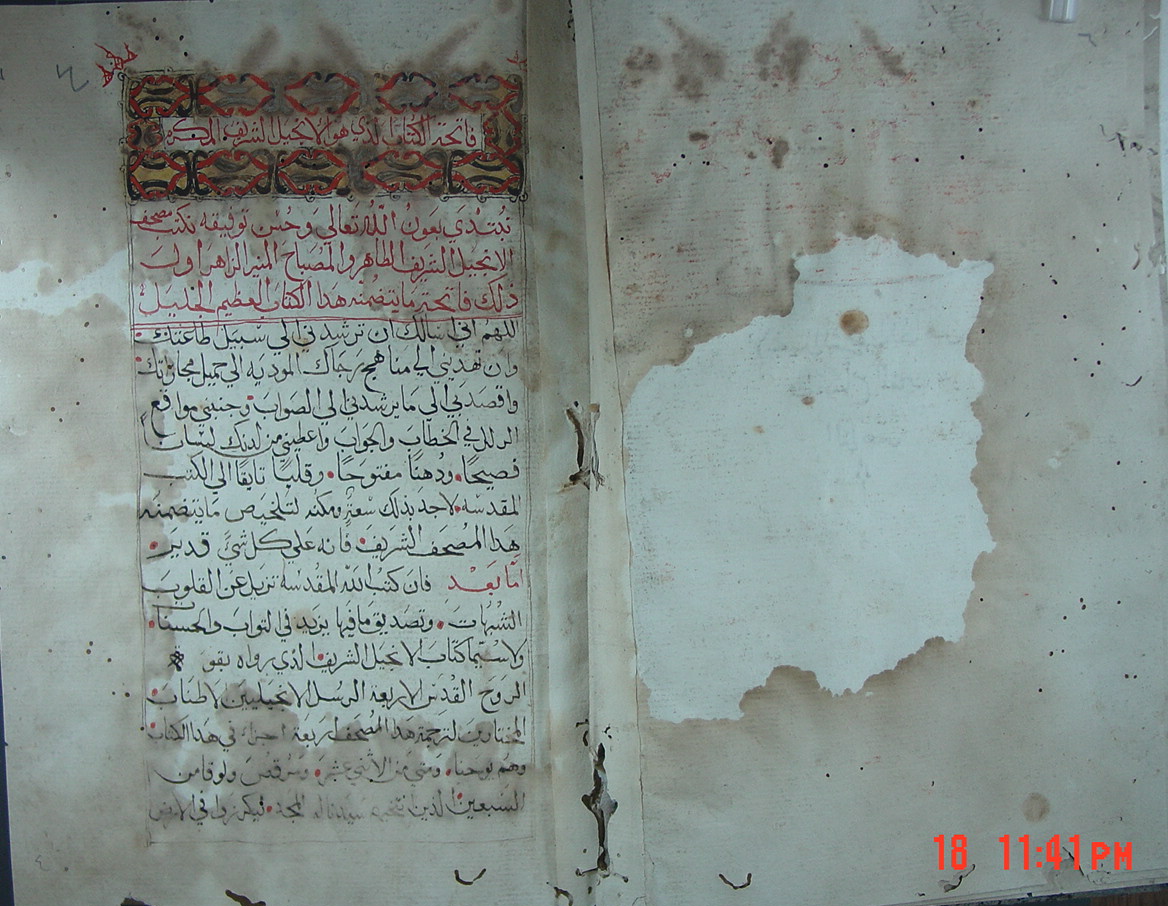 فاتحة الكتاب الذي هو الانجيل الشريف المكرم
نبتدي بعون الله تعالي وحسن توفيقه نكتب مصحف
الانجيل الشريف الطاهر والمصباح المنير الزاهر اول
ذلك فاتحة ما يتضمنه هذا الكتاب العظيم الجليل
اللهم اني اسالك ان ترشدني الي سبيل طاعتك
وان تهديني الي مناهج المودية الي جميل مجازاتك
واقصد بي الي ما يرشدني الي الصواب وجنبني مواقع
الزلل في الخطاب والجواب واعطيني من لدنك لسان
فصيحا ودهنا مفتوحا وقلبا تايقا الي الكتب
المقدسه لاجد بذلك سعة ومكنه لتلخيص ما يتضمنه
هذا المصحف الشريف فانه علي كل شي قدير
اما بعد فان كتب الله المقدسه تزيل عن القلوب
الشبهات وتصديق ما فيها يزيد في الثواب والحسنات
ولاسيما كتاب الانجيل الشريف الذي رواه بقوة
الروح القدس الاربعة الرسل الانجيليين الاطناب
المختارين لترجمة هذا المصحف اربعة اجزاء في هذا الكتاب
وهم يوحنا ومتي من الاثني عشر ومرقص ولوقا من
السبعين الذين المجد ليكرزوا في الارض
18 11:41PM